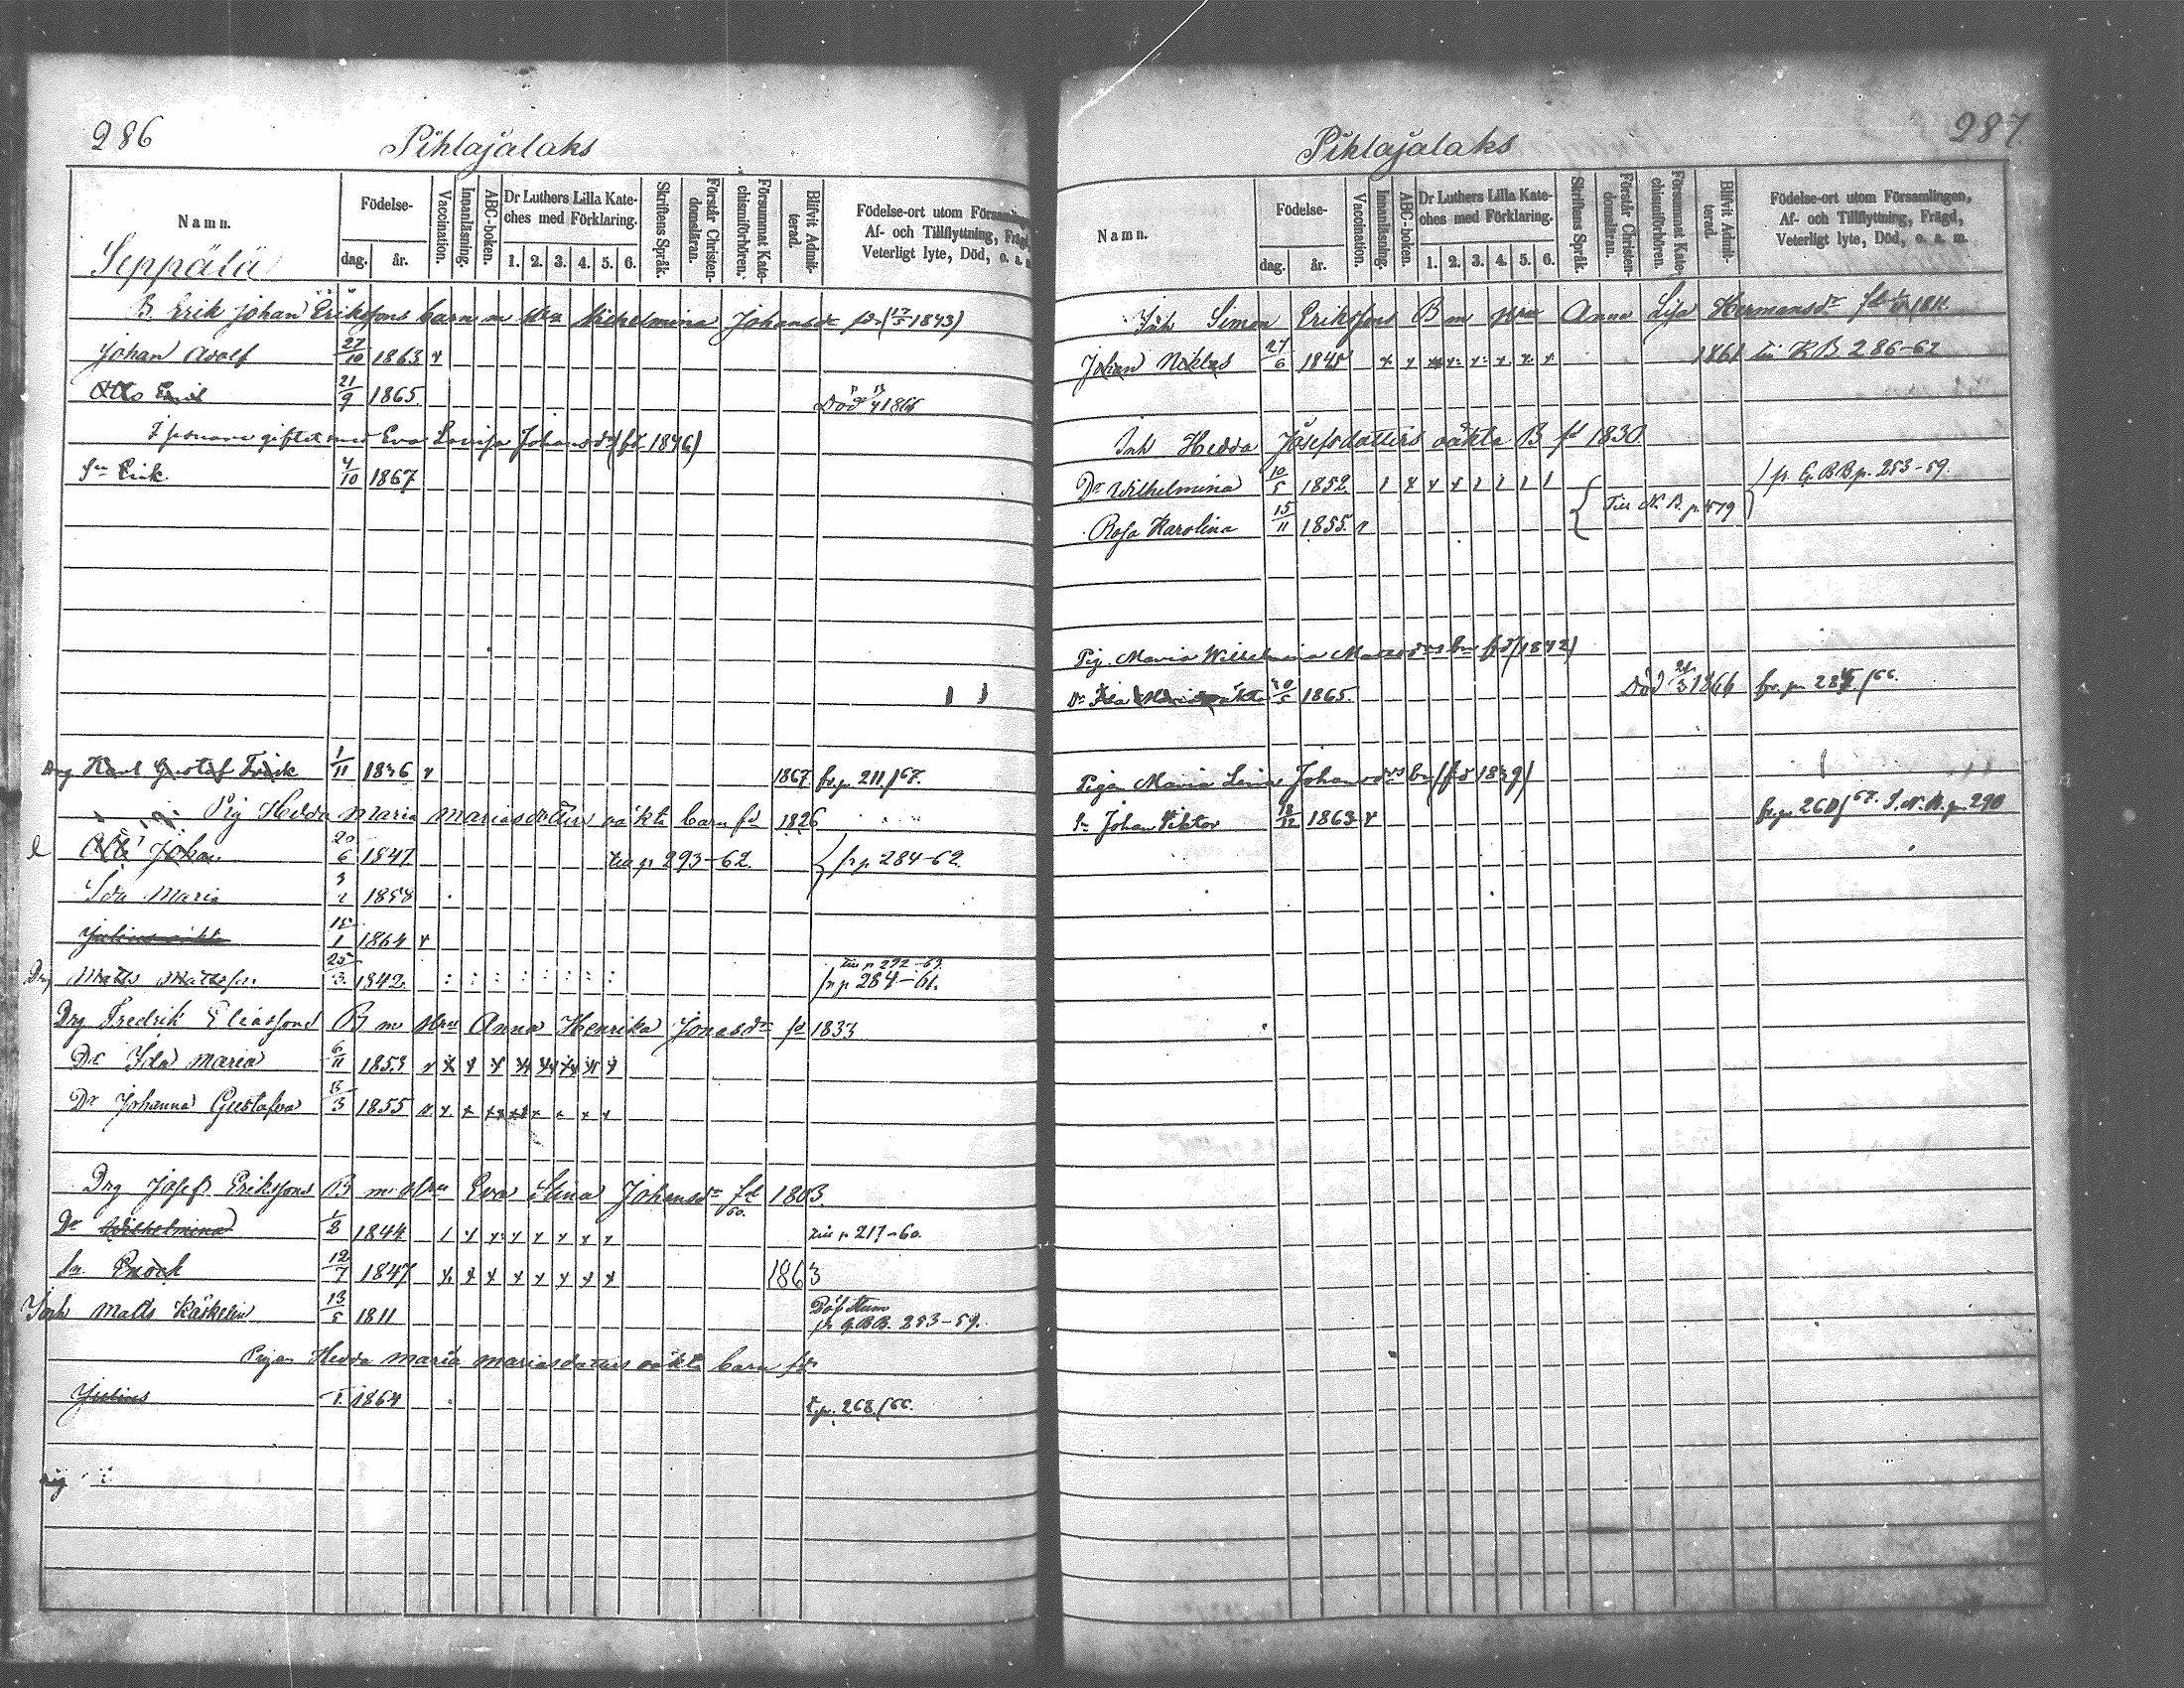 286
Pihlajalaks
Namn.
Födelse-
dag.
år.
Vaccination.
Innanläsning.
ABC-boken.
Dr Luthers Lilla Kate-
ches med Förklaring.
1. 2. 3. 4. 5. 6.
Skriftens Språk.
Förstår Christen-
domsläran.
Försummat Kate-
chismiförhören.
Blifvit Admit-
terad.
Födelse-ort utom Församlingen,
Af- och Tillflyttning, Frägd,
Veterligt lyte, Död, o. a. m.
Seppälä
B. Erik Johan Erikssons barn m hru Wilhelmina Johansdr fdr (1843)
Johan Adolf 27/10 1863 x
Otto Emil 21/9 1865 Död 1866
giftet med Eva Lovisa Johansdr (fd. 1846)
Sn Erik 4/10 1867
Drg Karl Gustaf Fredrik 1/11 1836 x 1867 fr.p. 211/67.
Pig Hedda Maria Mariasdotters oäkta barn fd 1826
Johan 20/6 1847 till p 293-62. fr p. 284-62.
Ida Maria 3/2 1858
Julius oäkta 15/1 1864 x
Drg Matts Mattsson 25/3 1842 till p 292-63.
fr p 284-61.
Drg Fredrik Eliassons B m Hru Anna Henrika Jonasdr fd 1833
Dr Ida Maria 6/11 1853 x x x x x x x x x
Dr Johanna Gustafva 13/3 1855 x x x x x x x x x
Drg Josef Erikssons B m Hru Eva Stina Johansdr fd 1803
Dr Wilhelmina 1/8 1844 1 x x x x x x x till p 217-60.
Sn Enock 12/7 1847 x x x x x x x x 1863
Inh Matts Käskelin 13/5 1811 Döfstum
fr G.B.B. 253-59.
Pigan Hedda Maria Mariasdatters oäkta barn fdr
Julius 1. 1864 t.p. 268/66.
287.
Pihlajalaks
Namn.
Födelse-
dag.
år.
Vaccination.
Innanläsning.
ABC-boken.
Dr Luthers Lilla Kate-
ches med Förklaring.
1. 2. 3. 4. 5. 6.
Skriftens Språk.
Förstår Christen-
domsläran.
Försummat Kate-
chismiförhören.
Blifvit Admit-
terad.
Födelse-ort utom Församlingen,
Af- och Tillflyttning, Frägd,
Veterligt lyte, Död, o. a. m.
Inh Simon Erikssons B m Hru Anna Lisa Hermansdr fd 1811.
Johan Niklas 27/6 1845 x x x x x x x x 1861 till K B 286-62
Inh Hedda Josefsdatters oäkta B fd 1830
Dr Wilhelmina 10/5 1852 1 x x x 1 1 1 1 fr. G.B.B.p. 253-59.
Rosa Karolina 15/11 1855. x Till N. B. p. 479
Pig. Maria Wilhelmina Mattsdrs bn fd (1842)
Dr Ida Maria oäkta 1865. Död 1866 fr.p. 284/66.
Pigan Maria Lena Johansdrs bn (fd 1839)
Sn Johan Viktor 12 1863 x fr.p. 260/67. I. N. B. p. 290